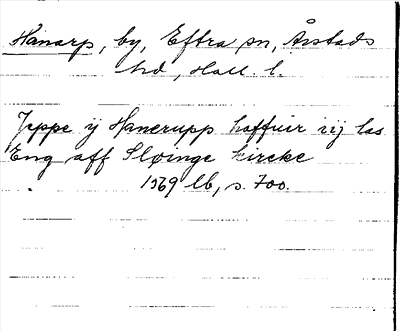 Hanarp, by, Eftra sn, Årstads
hd, Hall. l.
Jeppe ij Hanerupp haffuir vij las
Eng aff Sløinge kircke
1569 lb, s. 700.